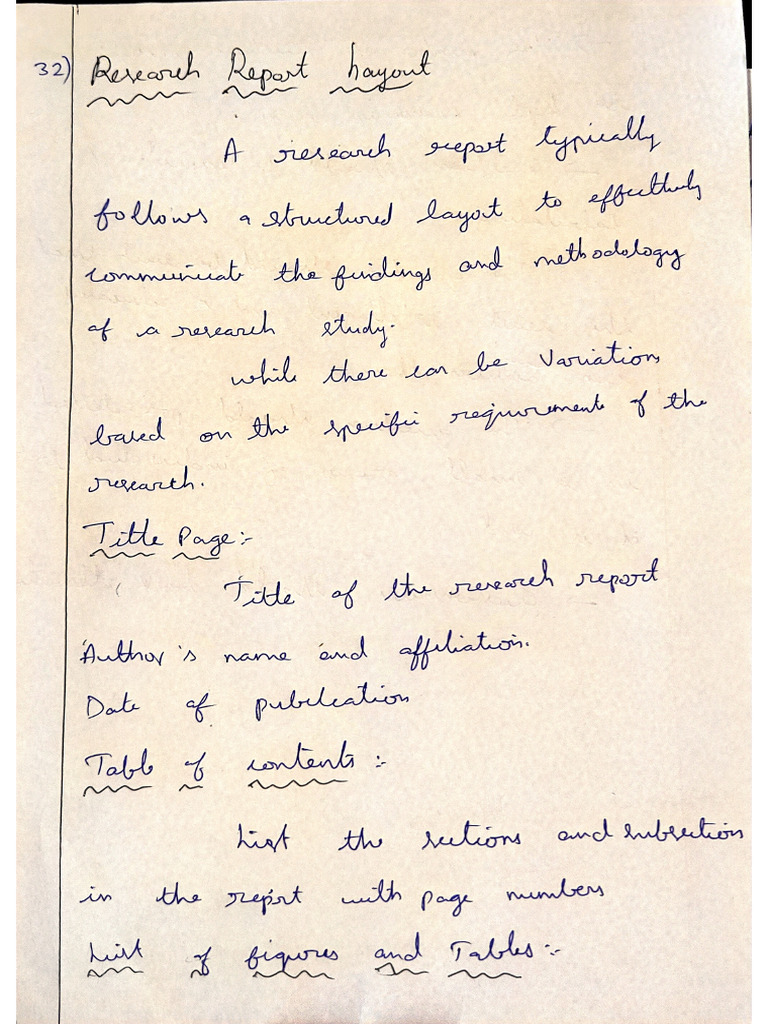 32) Research Report Layout
A research report typically
follows a structured layout to effectively
communicate the findings and methodology
of a research study.
while there can be variations
based on the specific requirements of the
research.
Title Page:-
Title of the research report
Author's name and affiliation.
Date of publication
Table of contents :-
List the sections and subsection
in the report with page numbers
List of figures and Tables:-